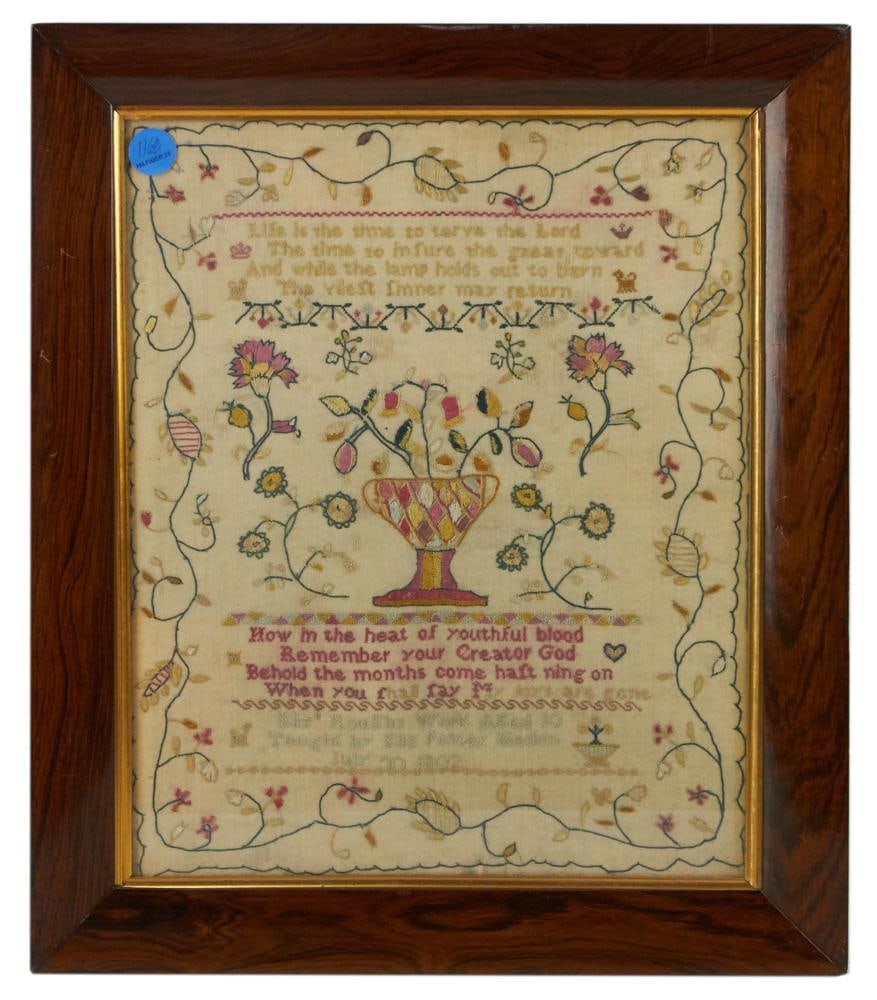 1160
HILFIGER 21
Life is the time to serve the Lord
The time to inſure the great reward
And while the lamp holds out to burn
The vileſt ſinner may return
Now in the heat of youthful blood
Remember your Creator God
Behold the months come haſt ning on
When you ſhall ſay My joys are gone
Work Aged 10
Taught by